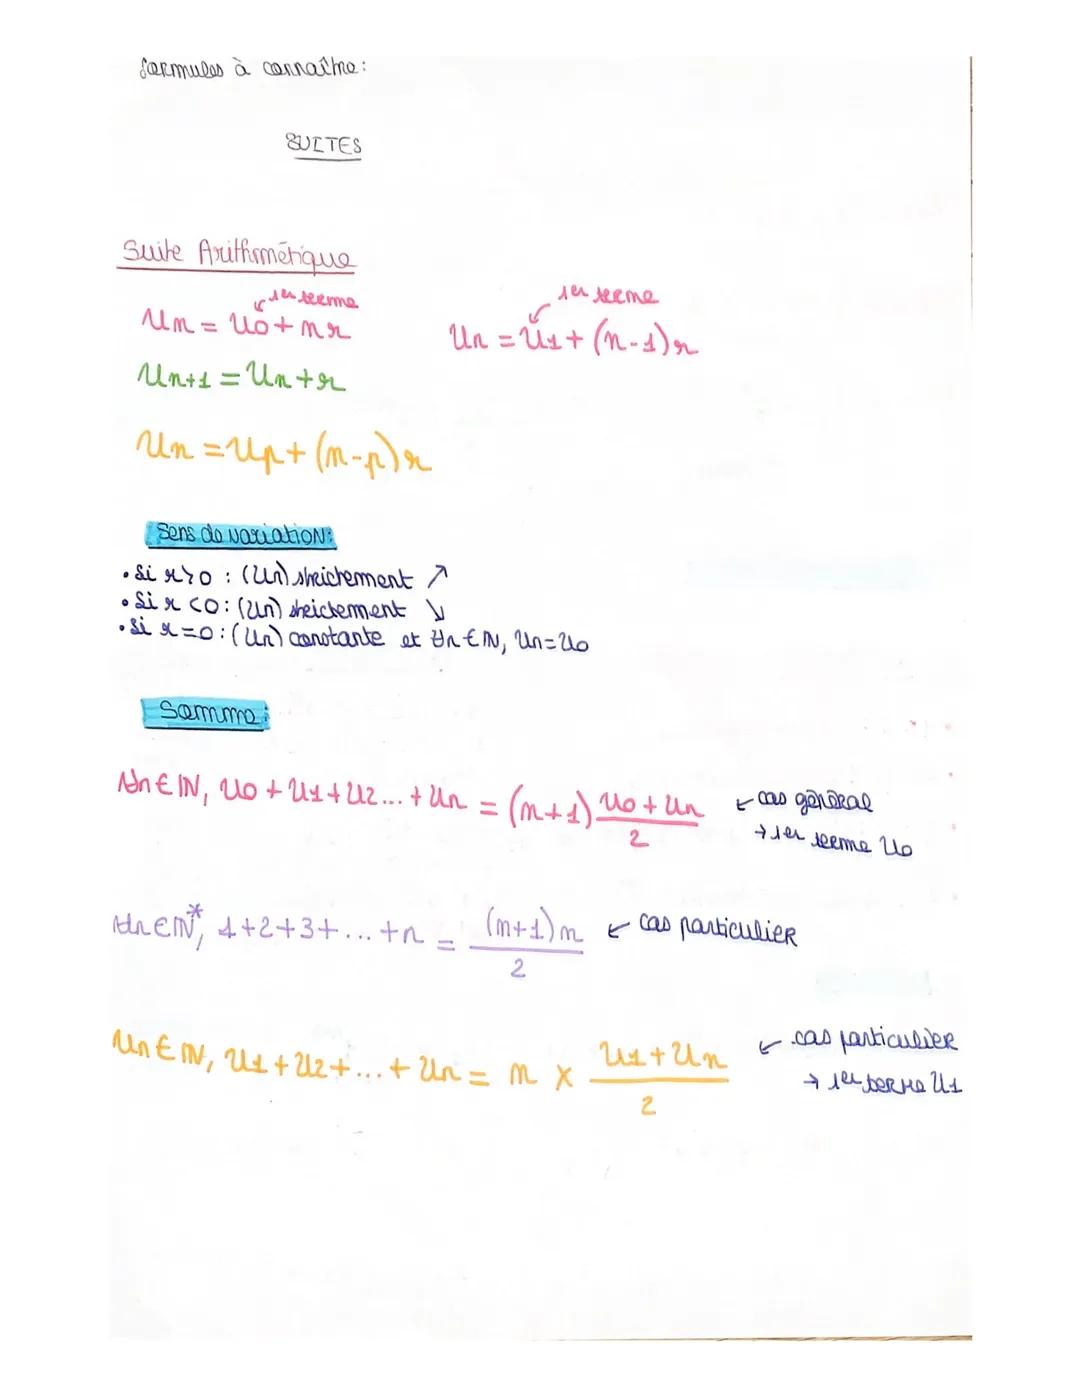 formules à connaître:
SUITES
Suite Arithmétique
1er terme
Un = U0 + nr
1er terme
Un = U1 + (n-1)r
Un+1 = Un + r
Un = Up + (n-p)r
Sens de variation:
• Si r>0 : (Un) strictement ↗
• Si r <0 : (Un) strictement ↘
• Si r=0 : (Un) constante et ∀n ∈ ℕ, Un=U0
Somme:
∀n ∈ ℕ, U0 + U1 + U2 ... + Un = (n+1) (U0 + Un)/2 ← cas général
→ 1er terme U0
∀n ∈ ℕ*, 1+2+3+...+n = (n+1)n/2 ← cas particulier
Un ∈ ℕ, U1 + U2 + ... + Un = n × (U1 + Un)/2 ← cas particulier
→ 1er terme U1